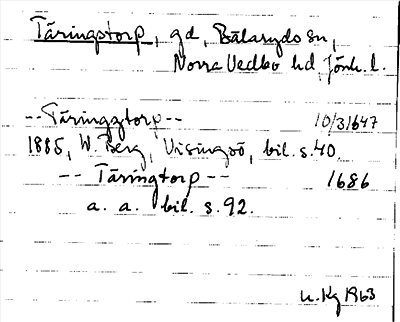 Täringstorp, gd, Bälaryds sn,
Norra Vedbo hd, Jönk. l.
--Täringztorp-- 10/3 1647
1885, W. Berg, Visingsö, bil. s. 40.
-- Täringtorp -- 1686
a. a. bil. s. 92.
1963